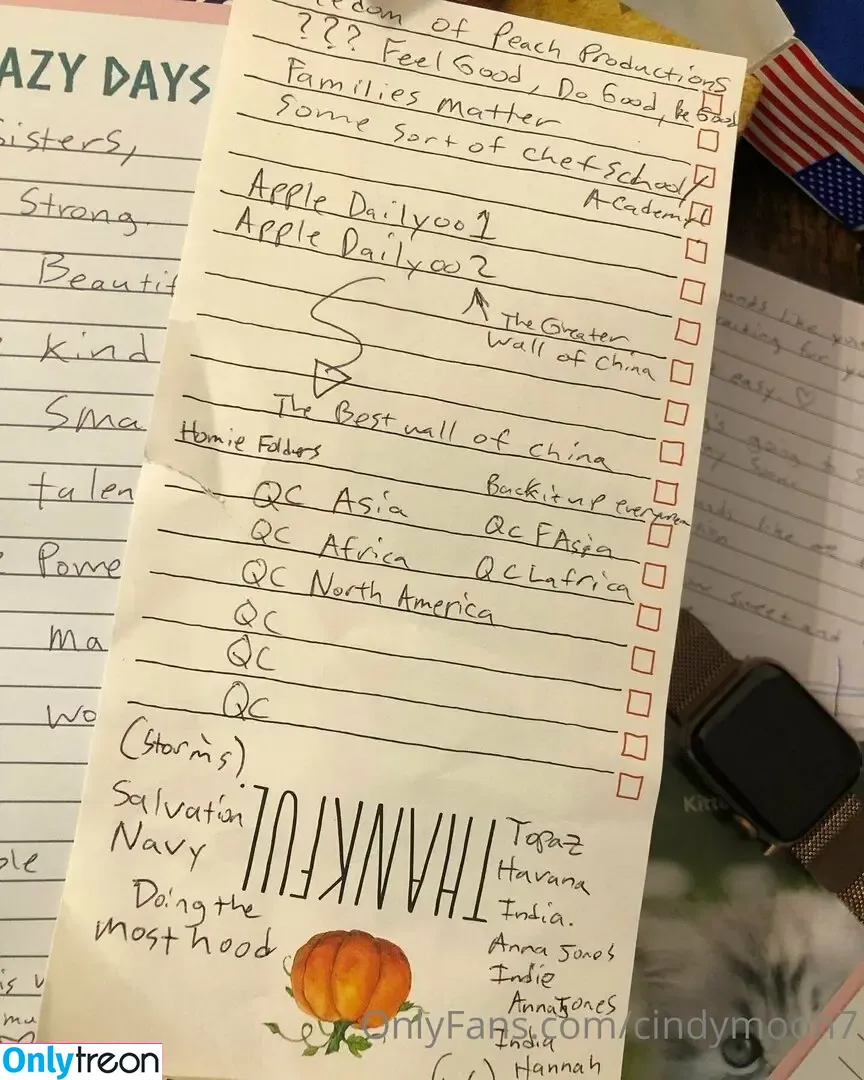 AZY DAYS
Sisters,
Strong
Beautif
kind
Sma
talen
Powe
ma
wo
ple
is v
ma
edom of Peach Productions
??? Feel Good, Do Good, be Good
Families matter
Some sort of chef school/
Academy
Apple Daily001
Apple Daily002
The Greater
Wall of China
The Best wall of china
Homie Folders
Back it up everywhere
QC Asia
QC FAsia
QC Africa
QC Lafrica
QC North America
QC
QC
QC
(Storms)
Salvation
Navy
Doing the
most hood
THANKFUL
Topaz
Havana
India.
Anna Jones
Indie
Anna Jones
India
Hannah
easy. ♡
sweet and
Kitt
OnlyFans.com/cindymoon7
Onlytreon